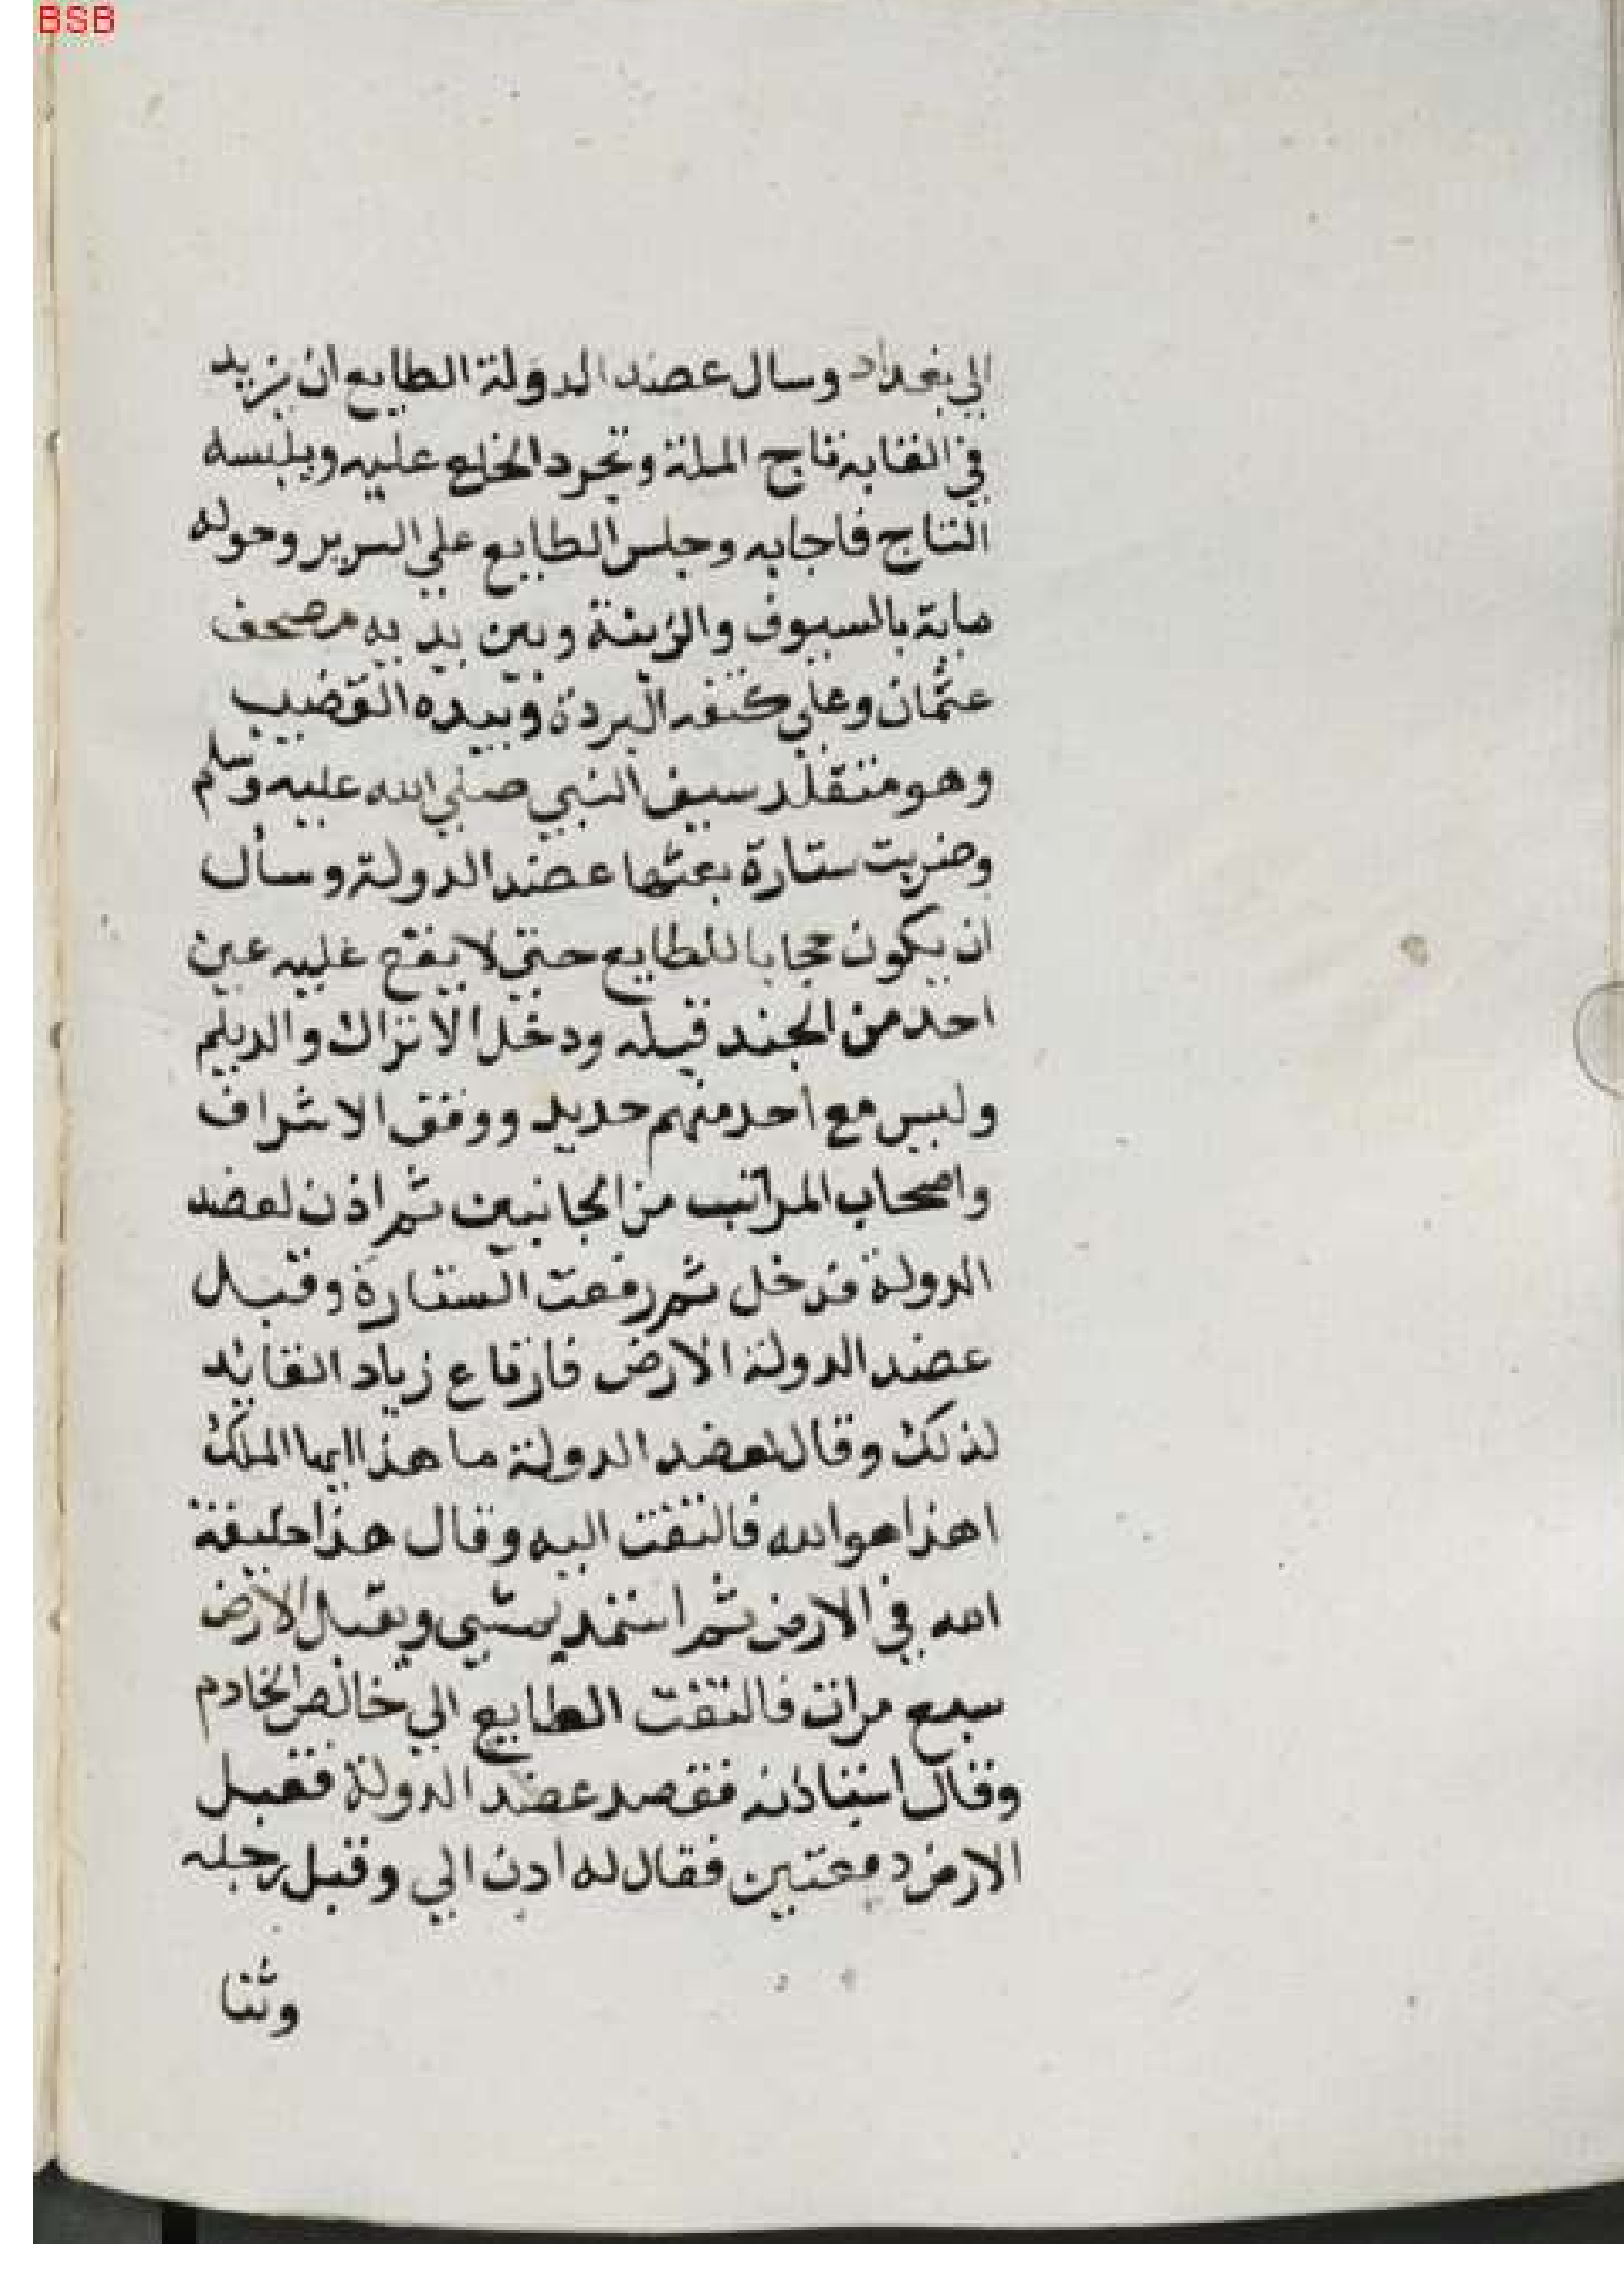 BSB
الي بغداد وسال عضد الدولة الطايع ان يزيد
في القابه تاج الملة وتجرد الخلع عليه ويلبسه
التاج فاجابه وجلس الطايع علي السرير وحوله
ماية بالسيوف والزينة وبين يديه مصحف
عثمان وعلي كتفه البردة وبيده القضيب
وهو متقلد سيف النبي صلي الله عليه وسلم
وضربت ستارة بعثها عضد الدولة وسأل
ان يكون حجابا للطايع حتي لا يقع عليه عين
احد من الجند قبله ودخل الاتراك والديلم
وليس مع احد منهم حديد ووقف الاشراف
واصحاب المراتب من الجانبين ثم اذن لعضد
الدولة فدخل ثم رفعت الستارة وقبل
عضد الدولة الارض فارتاع زياد القايد
لذلك وقال لعضد الدولة ما هذا ايها الملك
اهذا هو الله فالتفت اليه وقال هذا خليفة
الله في الارض ثم استمد يمشي ويقبل الارض
سبع مرات فالتفت الطايع الي خالص الخادم
وقال استاذنه فقصد عضد الدولة فقبل
الارض دفعتين فقال له ادن الي وقبل رجله
وثنا